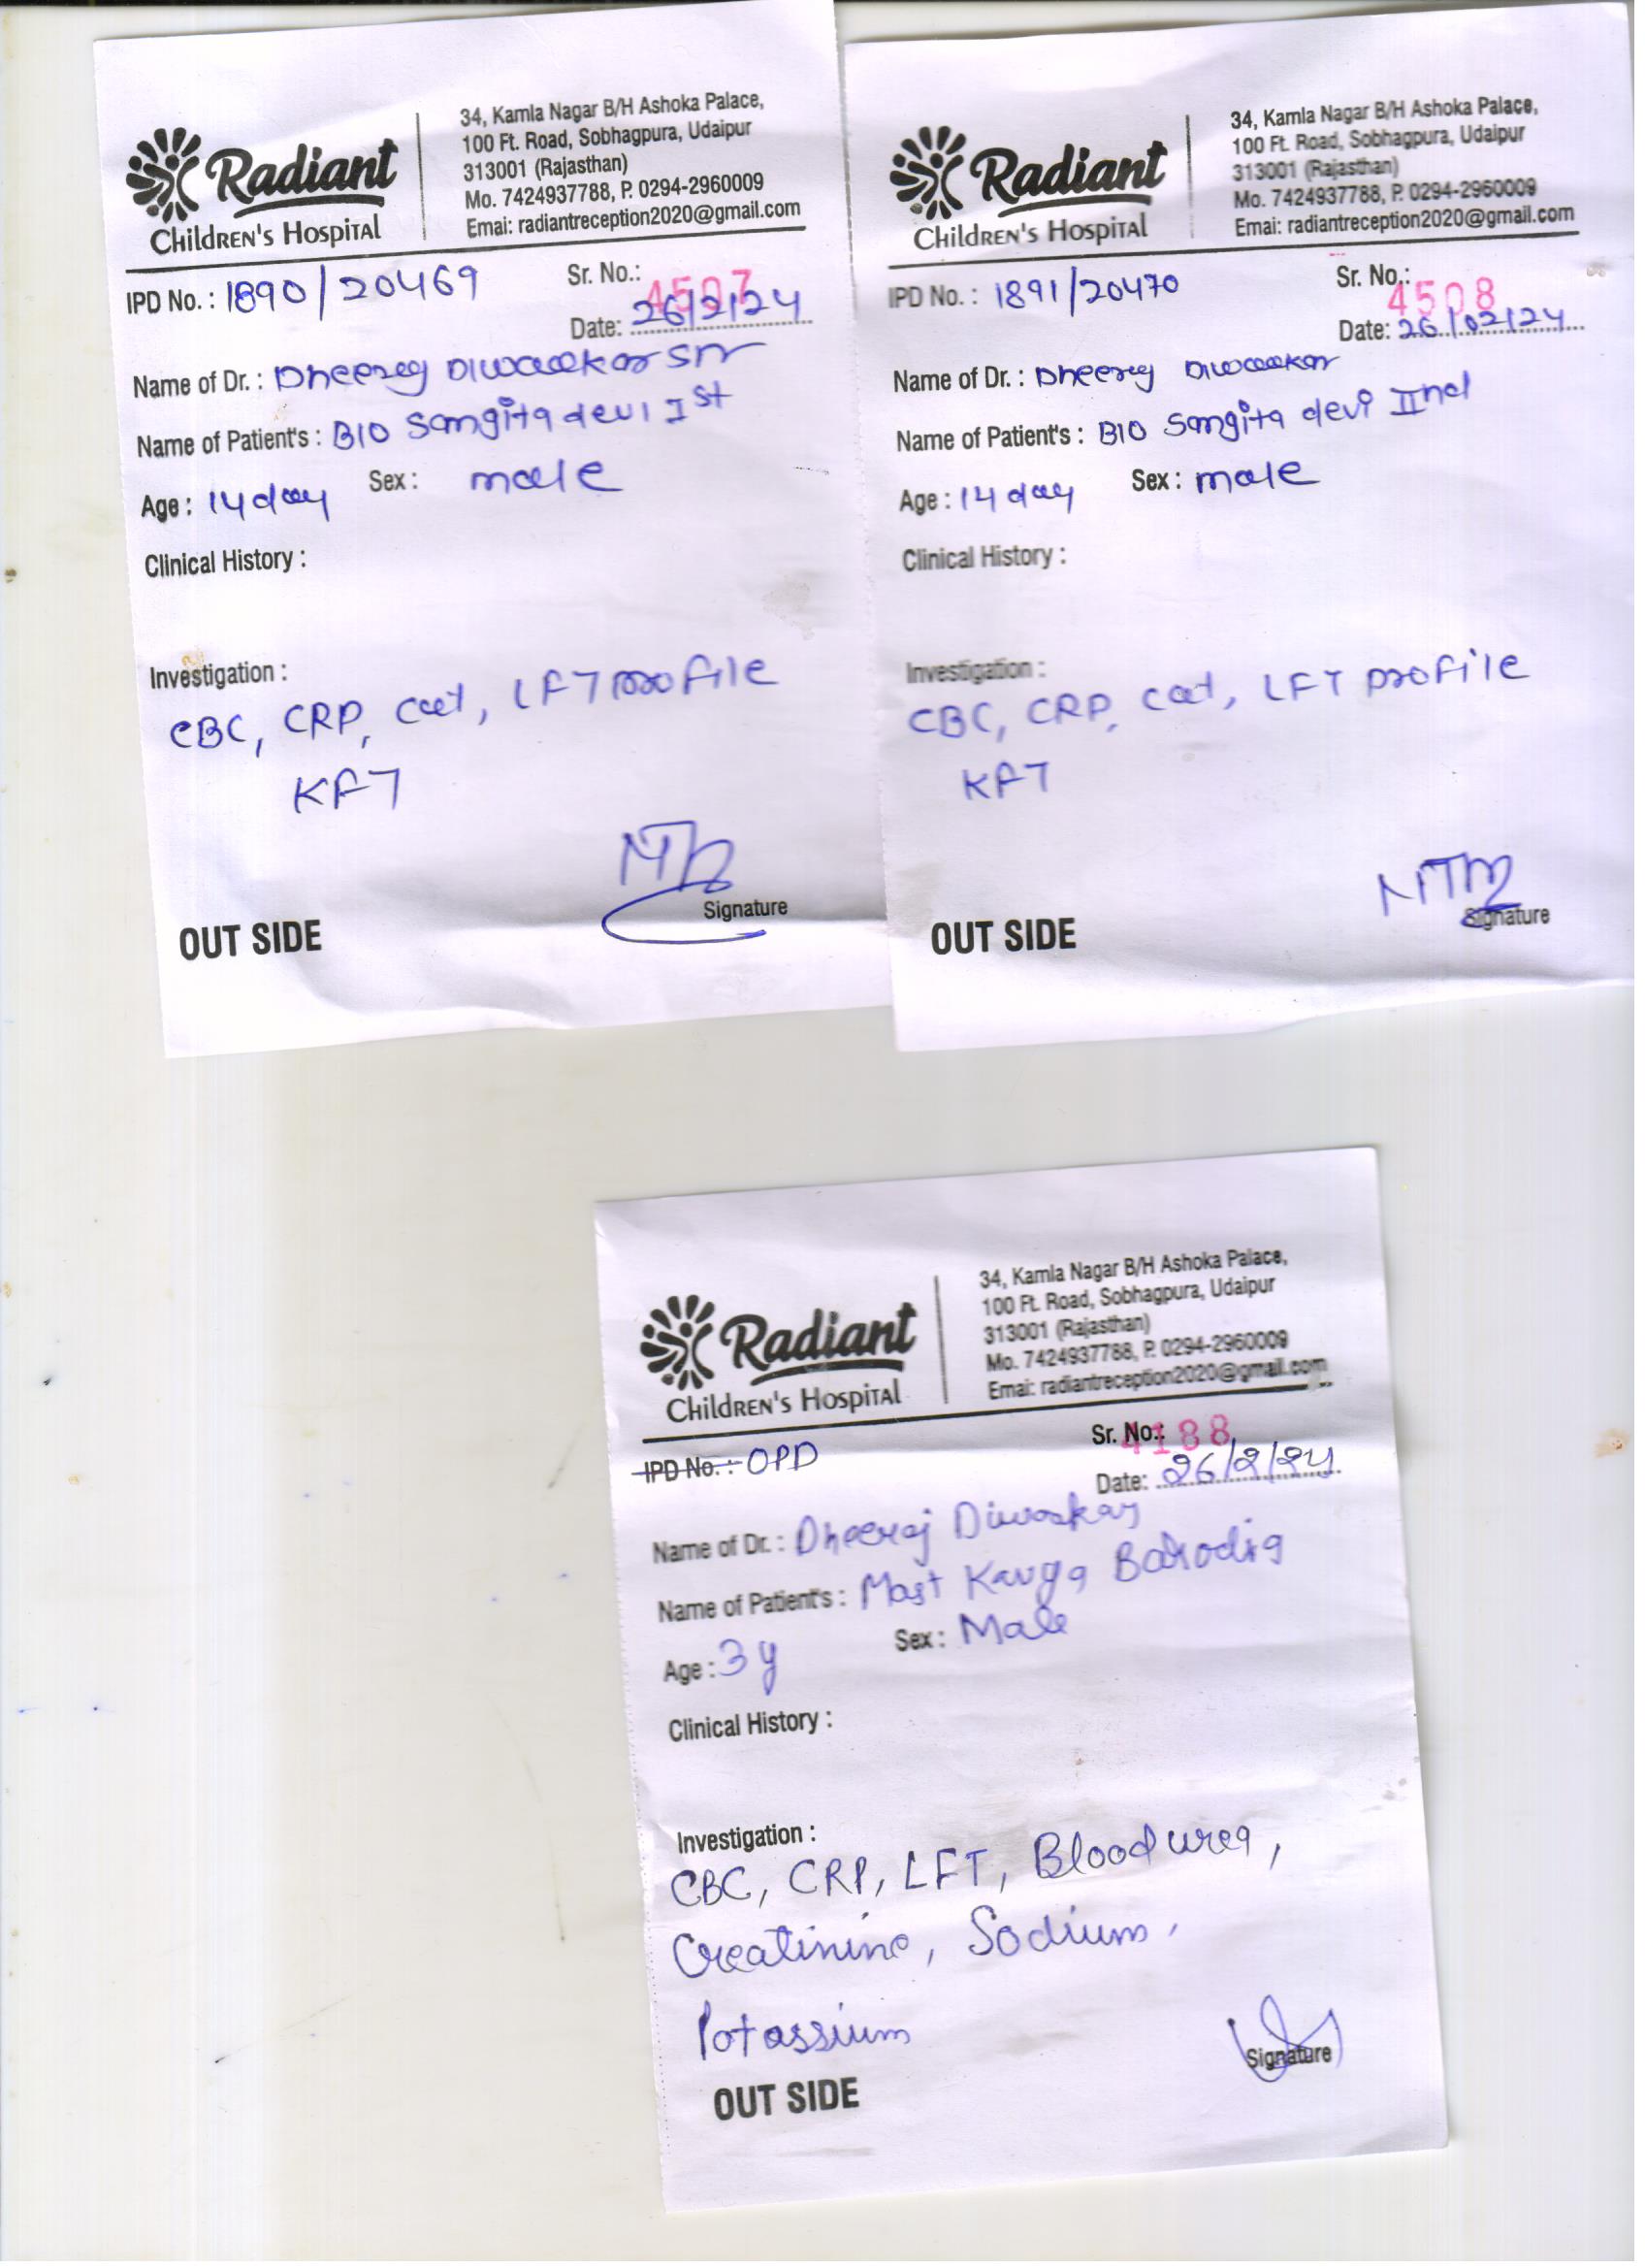 Radiant
Children's Hospital
34, Kamla Nagar B/H Ashoka Palace,
100 Ft. Road, Sobhagpura, Udaipur
313001 (Rajasthan)
Mo. 7424937788, P. 0294-2960009
Emai: radiantreception2020@gmail.com
IPD No. : 1890/20469
Sr. No.: 4507
Date: 26/2/24
Name of Dr. : Dheeraj Diwaakar Sir
Name of Patient's : B/O Sangita devi Ist
Age : 14 day Sex : male
Clinical History :
Investigation :
CBC, CRP, Cal, LFT profile
KFT
Signature
OUT SIDE
Radiant
Children's Hospital
34, Kamla Nagar B/H Ashoka Palace,
100 Ft. Road, Sobhagpura, Udaipur
313001 (Rajasthan)
Mo. 7424937788, P. 0294-2960009
Emai: radiantreception2020@gmail.com
IPD No. : 1891/20470
Sr. No.: 4508
Date: 26/02/24
Name of Dr. : Dheeraj Diwaakar
Name of Patient's : B/O Sangita devi IInd
Age : 14 day Sex : male
Clinical History :
Investigation :
CBC, CRP, Cal, LFT profile
KFT
Signature
OUT SIDE
Radiant
Children's Hospital
34, Kamla Nagar B/H Ashoka Palace,
100 Ft. Road, Sobhagpura, Udaipur
313001 (Rajasthan)
Mo. 7424937788, P. 0294-2960009
Emai: radiantreception2020@gmail.com
IPD No. : OPD
Sr. No.: 4188
Date: 26/2/24
Name of Dr. : Dheeraj Diwakar
Name of Patient's : Mast Barodia
Age : 3 y Sex : Male
Clinical History :
Investigation :
CBC, CRP, LFT, Blood urea,
Creatinine, Sodium,
Potassium
Signature
OUT SIDE